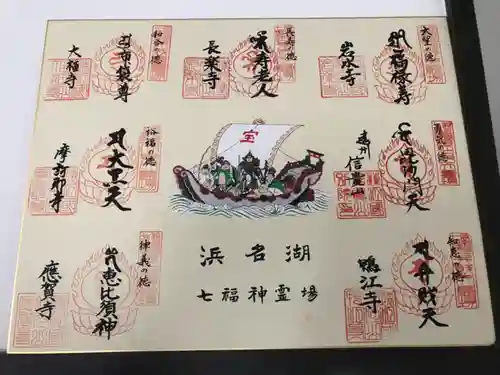 大生の徳
福禄寿
岩水寺
長寿の徳
寿老人
長楽寺
和合の徳
布袋尊
大福寺
勇気の徳
毘沙門天
遠州
信貴山
宝
裕福の徳
大黒天
摩訶耶寺
知恵の徳
弁財天
鴨江寺
浜名湖
七福神霊場
律義の徳
恵比須神
應賀寺